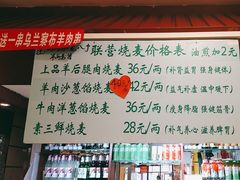 送一串乌兰察布羊肉串
联营烧麦价格表 油煎加2元
上品羊后腿肉烧麦 36元/两(补肾益胃 强身健体)
羊肉沙葱馅烧麦 42元/两(益气补虚 温中暖下)
牛肉洋葱馅烧麦 36元/两(瘦身降脂 强健筋骨)
素三鲜烧麦 28元/两(补气养心 滋养脾胃)